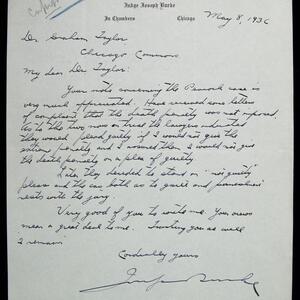 Copy
Judge Joseph Burke
In Chambers Chicago
May 8, 1936
Dr. Graham Taylor
Chicago Commons
My dear Dr. Taylor:
Your note concerning the case is
very much appreciated. Have received some letters
of complaint that the death penalty was not imposed.
As to the two now on trial the lawyers admitted
they would plead guilty if I would not give the
extreme penalty and I assured them I would not give
the death penalty on a plea of guilty.
Later they decided to stand on "not guilty"
pleas and the case both as to guilt and punishment
rests with the jury.
Very good of you to write me. Your views
mean a great deal to me. Trusting you are well
I remain
Cordially yours
Joseph Burke